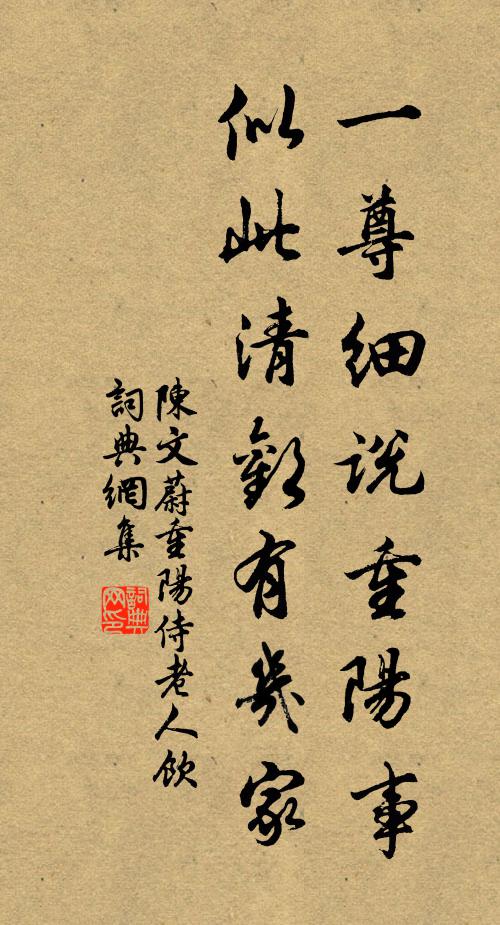 一尊細說重陽事
似此清歡有幾家
陳文蔚重陽侍老人飲
詞典網集
詞典网印